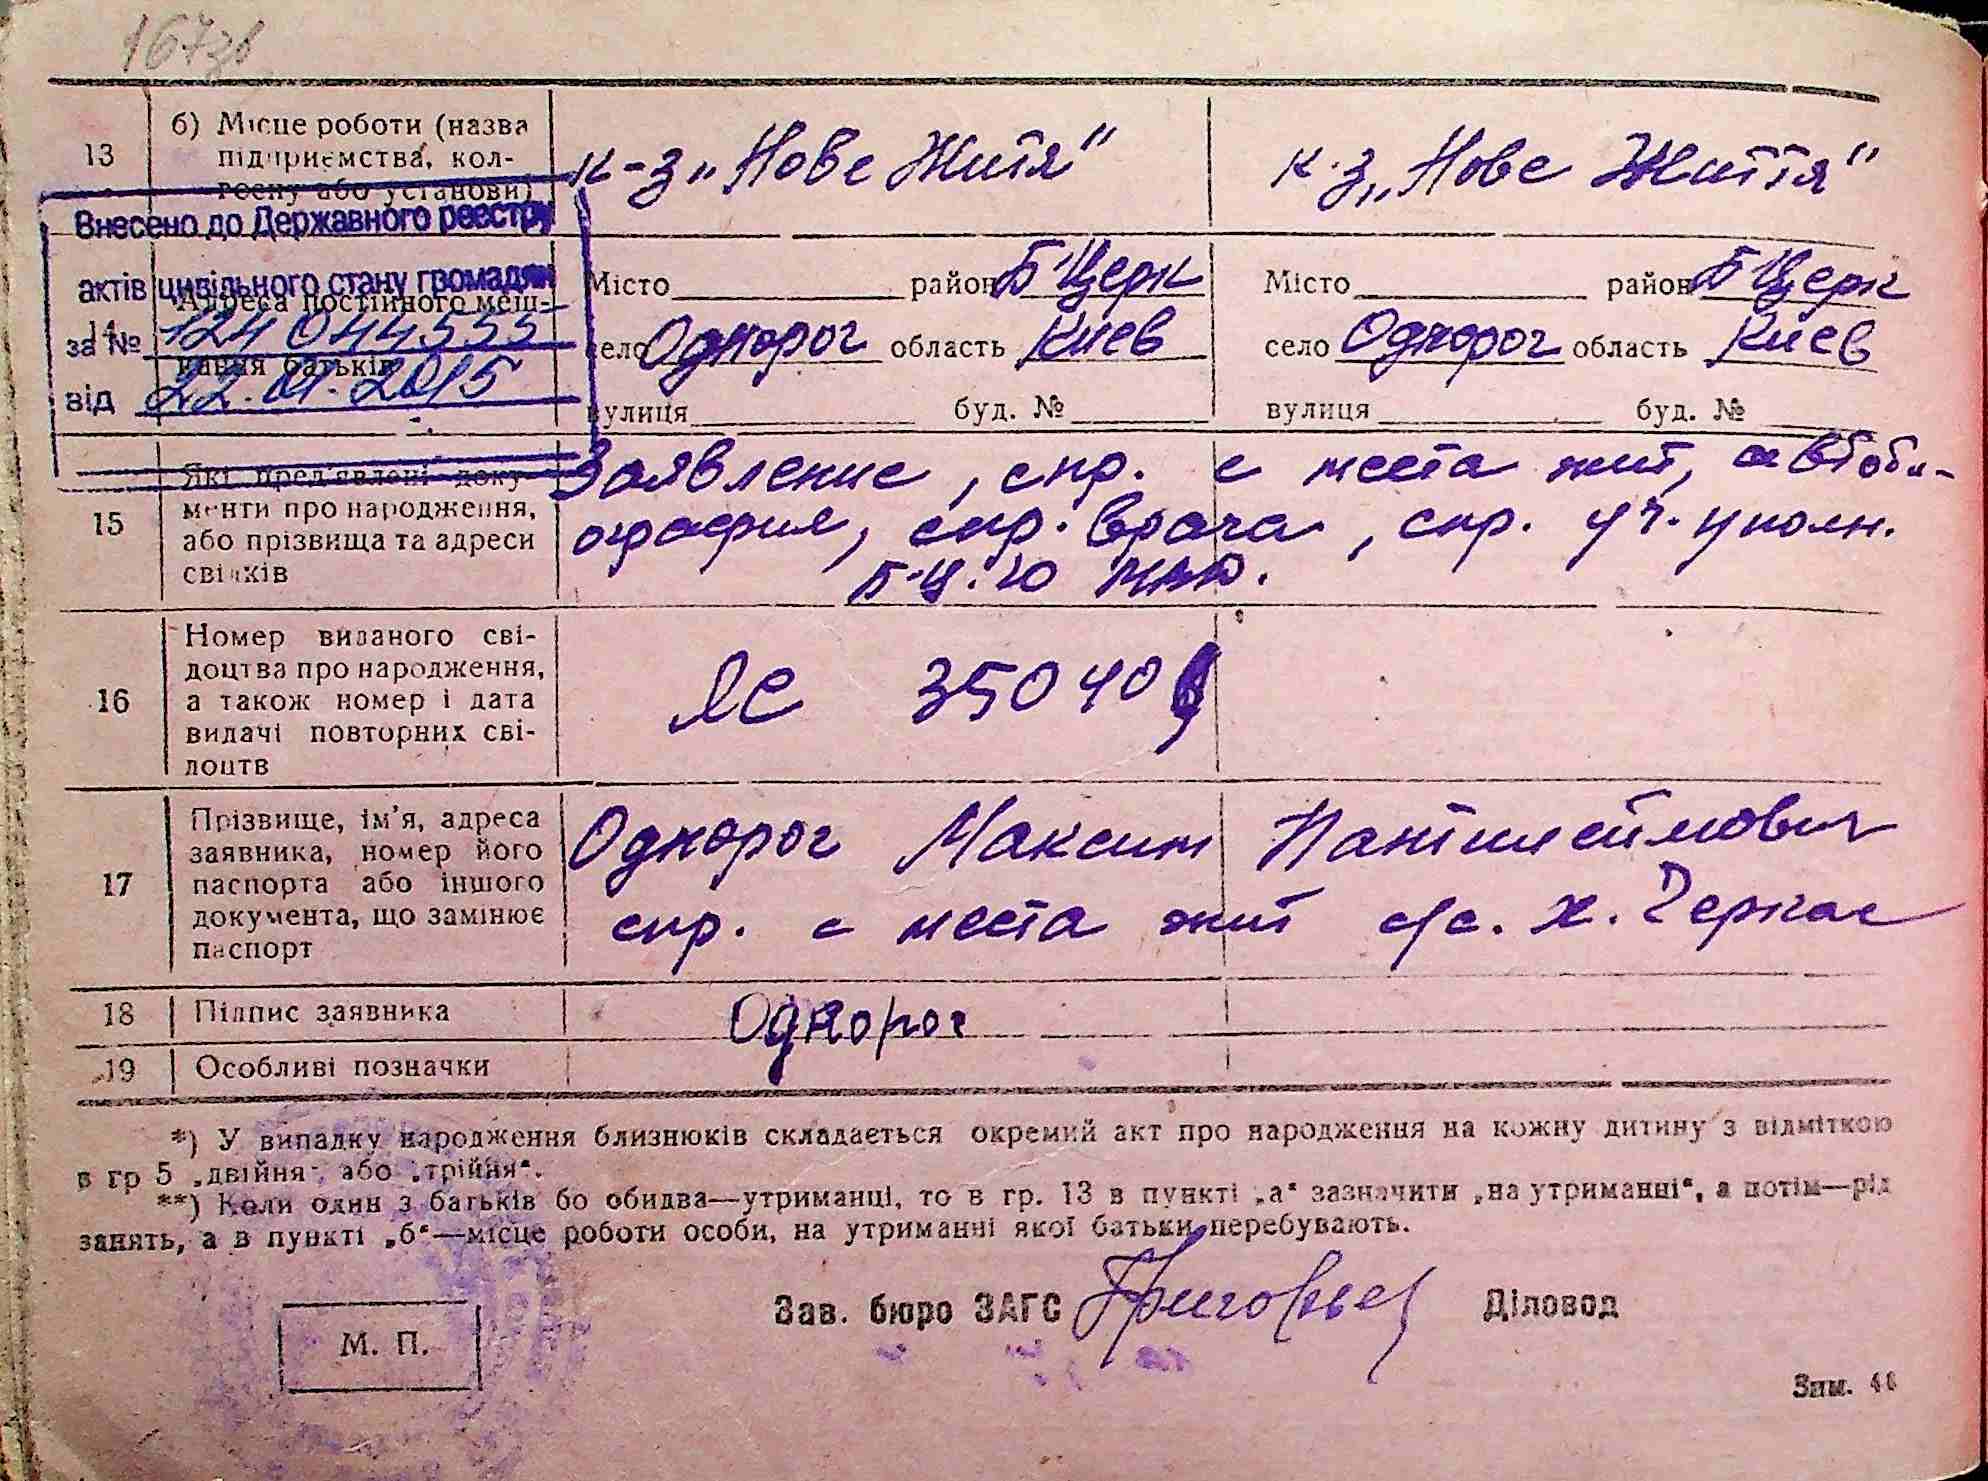 167зв
13
б) Місце роботи (назва
підприємства, кол-
госпу або установи)
к-з „Нове Життя"
к-з „Нове Життя"
Внесено до Державного реєстру
актів цивільного стану громадян
за № 124 044555
від 22.01.2015
14
Адреса постійного меш-
кання батьків
Місто район Б-Церк
село Однорог область Киев
вулиця буд. №
Місто район Б-Церк
село Однорог область Киев
вулиця буд. №
15
Які пред'явлені доку-
менти про народження,
або прізвища та адреси
свідків
Заявление, спр. с места жит, автоби-
ография, спр. врача, спр. уч. уполн.
Б-Ц. ГО
16
Номер виданого сві-
доцтва про народження,
а також номер і дата
видачі повторних сві-
доцтв
ЯС 350 40
17
Прізвище, ім'я, адреса
заявника, номер його
паспорта або іншого
документа, що замінює
паспорт
Однорог Максим Пантилеймович
спр. с места жит с/с. х. Черкас
18
Підпис заявника
Однорог
19
Особливі позначки
*) У випадку народження близнюків складається окремий акт про народження на кожну дитину з відміткою
в гр 5 „двійня" або „трійня".
**) Коли один з батьків бо обидва—утриманці, то в гр. 13 в пункті „а" зазначити „на утриманні", а потім—рід
занять, а в пункті „б"—місце роботи особи, на утриманні якої батьки перебувають.
М. П.
Зав. бюро ЗАГС Григорьев Діловод
Зам.